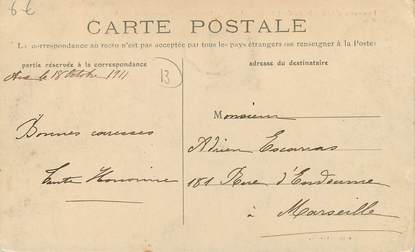 6€
CARTE POSTALE
La correspondance au recto n'est pas acceptée par tous les pays étrangers (se renseigner à la Poste)
partie réservée à la correspondance
adresse du destinataire
le 18 Octobre 1911
13
Monsieur
Bonnes caresses
Adrien Escarras
Tante Honorine
181 Rue d'Endoume
à
Marseille